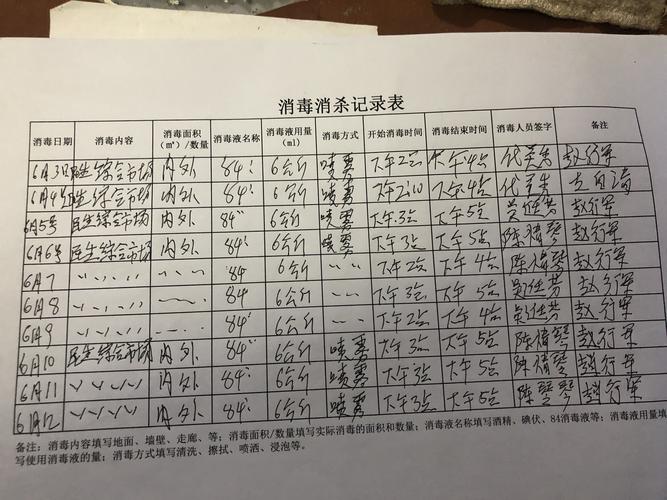 消毒消杀记录表
消毒日期 消毒内容 消毒面积(㎡)/数量 消毒液名称 消毒液用量(ml) 消毒方式 开始消毒时间 消毒结束时间 消毒人员签字 备注
6月3日 民生综合市场 内外 84 6公斤 喷雾 下午2点 下午4点 赵行军
6月4号 民生综合市场 内外 84 6公斤 喷雾 下午2:10 下午4点
6月5号 民生综合市场 内外 84 6公斤 喷雾 下午3点 下午5点 赵行军
6月6号 民生综合市场 内外 84 6公斤 喷雾 下午3点 下午5点 陈倩琴 赵行军
6月7 〃〃〃〃 〃〃 84 6公斤 〃〃 下午2点 下午4点 陈倩琴 赵行军
6月8 〃〃〃〃 84 6公斤 〃〃 下午3点 下午5点 赵行军
6月9 〃〃〃〃 84 6公斤 〃〃 下午2点 下午4点 赵行军
6月10 民生综合市场 内外 84 6公斤 喷雾 下午3点 下午5点 陈倩琴 赵行军
6月11 〃〃〃〃 内外 84 6公斤 喷雾 下午3点 下午5点 陈倩琴 赵行军
6月12 〃〃〃〃 内外 84 6公斤 喷雾 下午3点 下午5点 赵行军
备注：消毒内容填写地面、墙壁、走廊、等；消毒面积/数量填写实际消毒的面积和数量；消毒液名称填写酒精、碘伏、84消毒液等；消毒液用量填
写使用消毒液的量；消毒方式填写清洗、擦拭、喷洒、浸泡等。